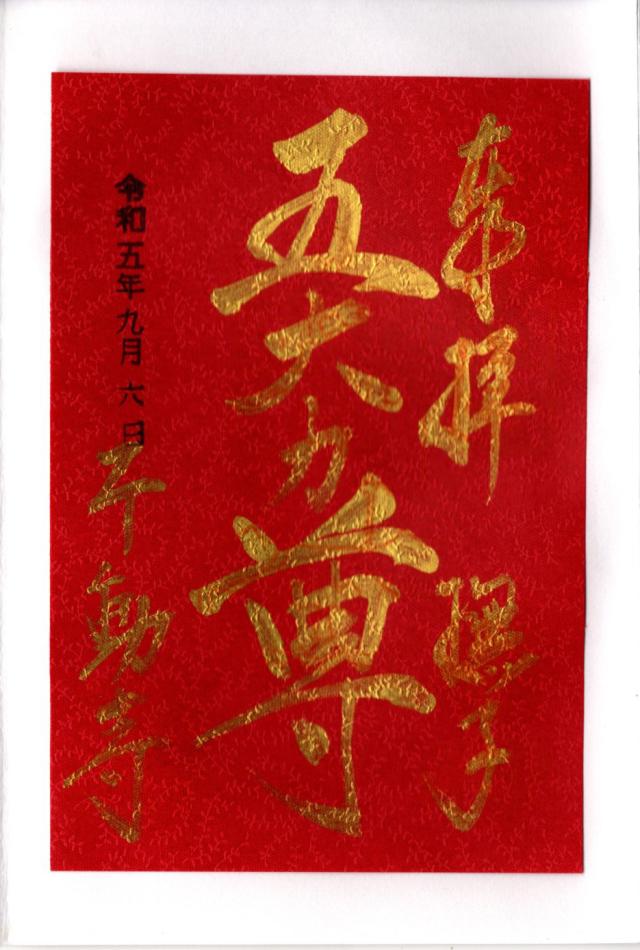 奉拝 撫子
五大力尊
令和五年九月六日
不動寺